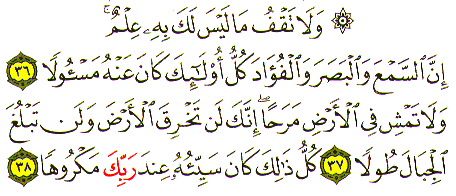 ۞ وَلَا تَقْفُ مَا لَيْسَ لَكَ بِهِۦ عِلْمٌۚ
إِنَّ ٱلسَّمْعَ وَٱلْبَصَرَ وَٱلْفُؤَادَ كُلُّ أُو۟لَٰٓئِكَ كَانَ عَنْهُ مَسْـُٔولًا ٣٦
وَلَا تَمْشِ فِى ٱلْأَرْضِ مَرَحًاۖ إِنَّكَ لَن تَخْرِقَ ٱلْأَرْضَ وَلَن تَبْلُغَ
ٱلْجِبَالَ طُولًا ٣٧ كُلُّ ذَٰلِكَ كَانَ سَيِّئُهُۥ عِندَ رَبِّكَ مَكْرُوهًا ٣٨